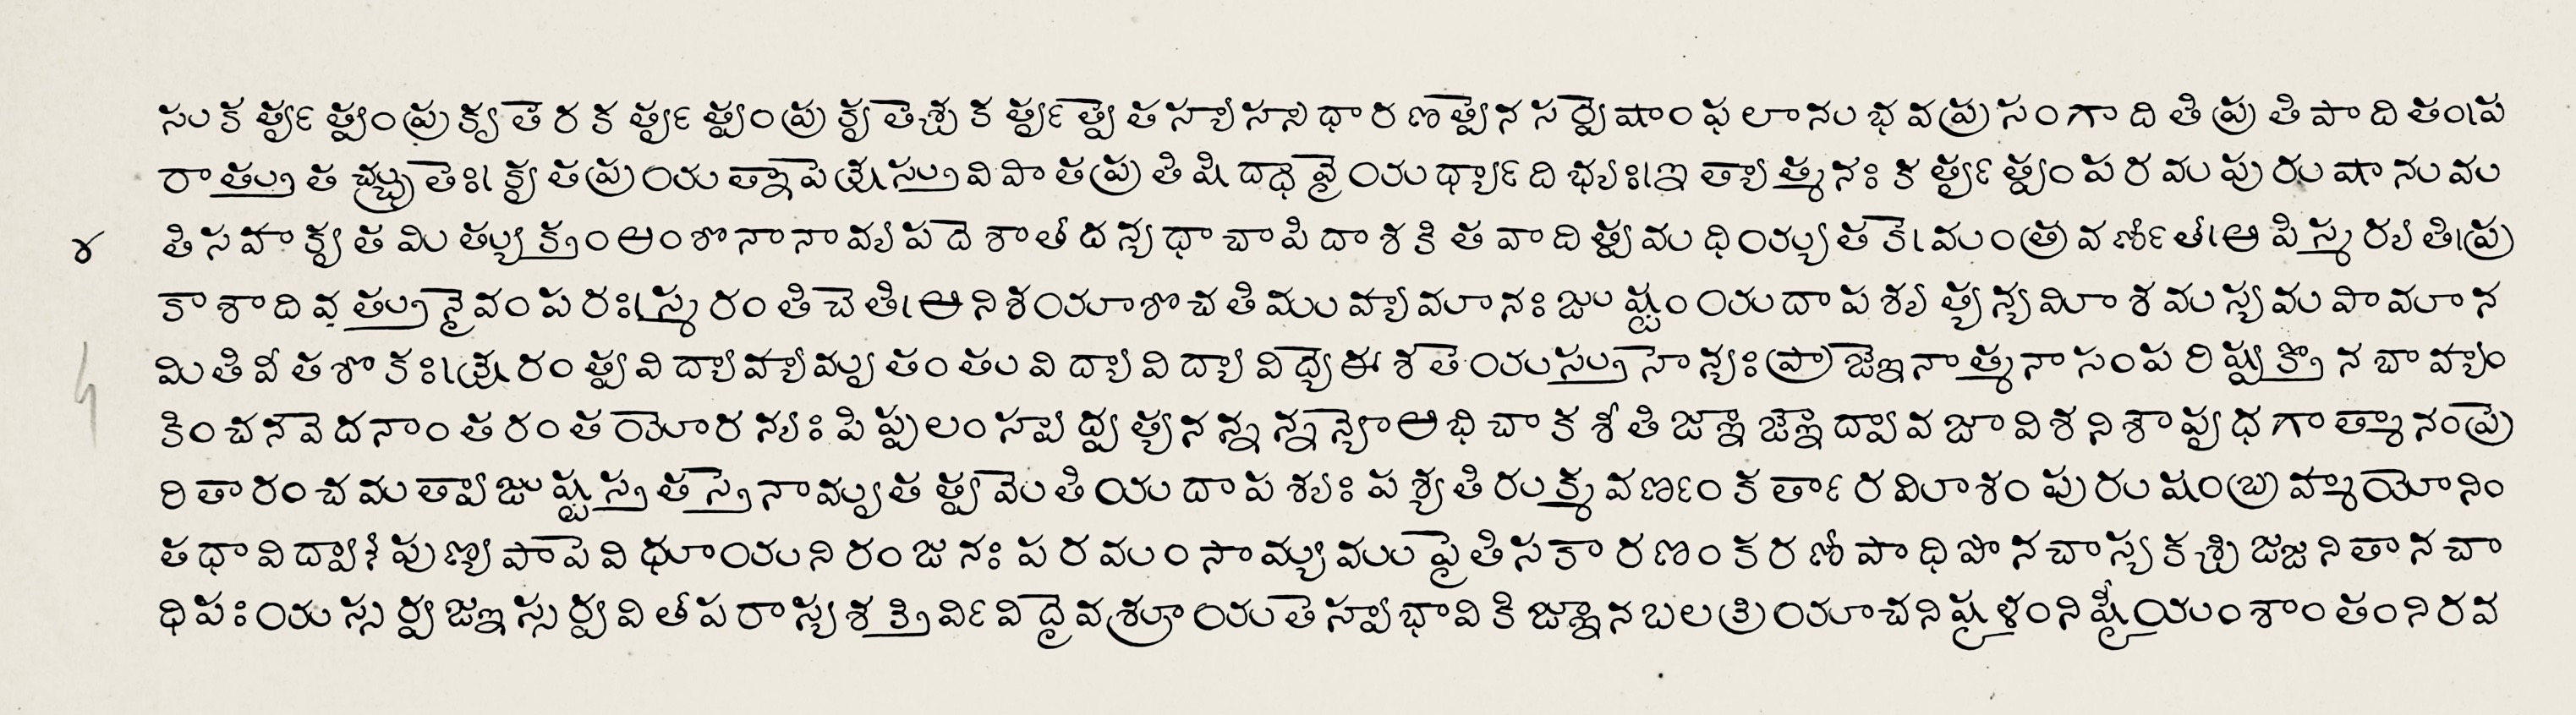 సుకర్తృత్వంప్రకృతేరకర్తృత్వంప్రకృతేశ్చకర్తృత్వేతస్యాస్సాధారణత్వేనసర్వేషాంఫలానుభవప్రసంగాదితిప్రతిపాదితం।ప
రాత్తుతచ్ఛ్రుతేః।కృతప్రయత్నాపేక్షస్తువిహితప్రతిషిద్ధావైయర్థ్యాదిభ్యః।ఇత్యాత్మనఃకర్తృత్వంపరమపురుషానుమ
౪ తిసహకృతమిత్యుక్తంఅంశోనానావ్యపదేశాతదన్యథాచాపిదాశకితవాదిత్వమధీయ్యతకే।మంత్రవర్ణాతీ।అపిస్మర్యతి।ప్ర
కాశాదివత్తునైవంపరః।స్మరంతిచేతి।అనిశయాశోచతిముహ్యమానఃజుష్టంయదాపశ్యత్యన్యమీశమస్యమహిమాన
మితివీతశోకః।క్షరంత్వవిద్యాహ్యమృతంతువిద్యావిద్యావిద్యేఈశతేయస్తుసోన్యఃప్రాజ్ఞేనాత్మనాసంపరిష్వక్తోనబాహ్యం
కించనవేదనాంతరంతయోరన్యఃపిప్పలంస్వాద్వత్యనన్నన్నన్యోఅభిచాకశీతిజ్ఞాజ్ఞౌద్వావజావిశనిశాపృథగాత్మానంప్రే
రితారంచమత్వాజుష్టస్తతస్తేనామృతత్వమేతియదాపశ్యఃపశ్యతిరుక్మవర్ణంకర్తారమీశంపురుషంబ్రహ్మయోనిం
తథావిద్వాన్పుణ్యపాపేవిధూయనిరంజనఃపరమంసామ్యముపైతిసకారణంకరణాధిపోనచాస్యకశ్చిజ్జనితానచా
ధిపఃయస్సర్వజ్ఞస్సర్వవితీపరాస్యశక్తిర్వివిధైవశ్రూయతేస్వాభావికిజ్ఞానబలక్రియాచనిష్కళంనిష్క్రియంశాంతంనిరవ